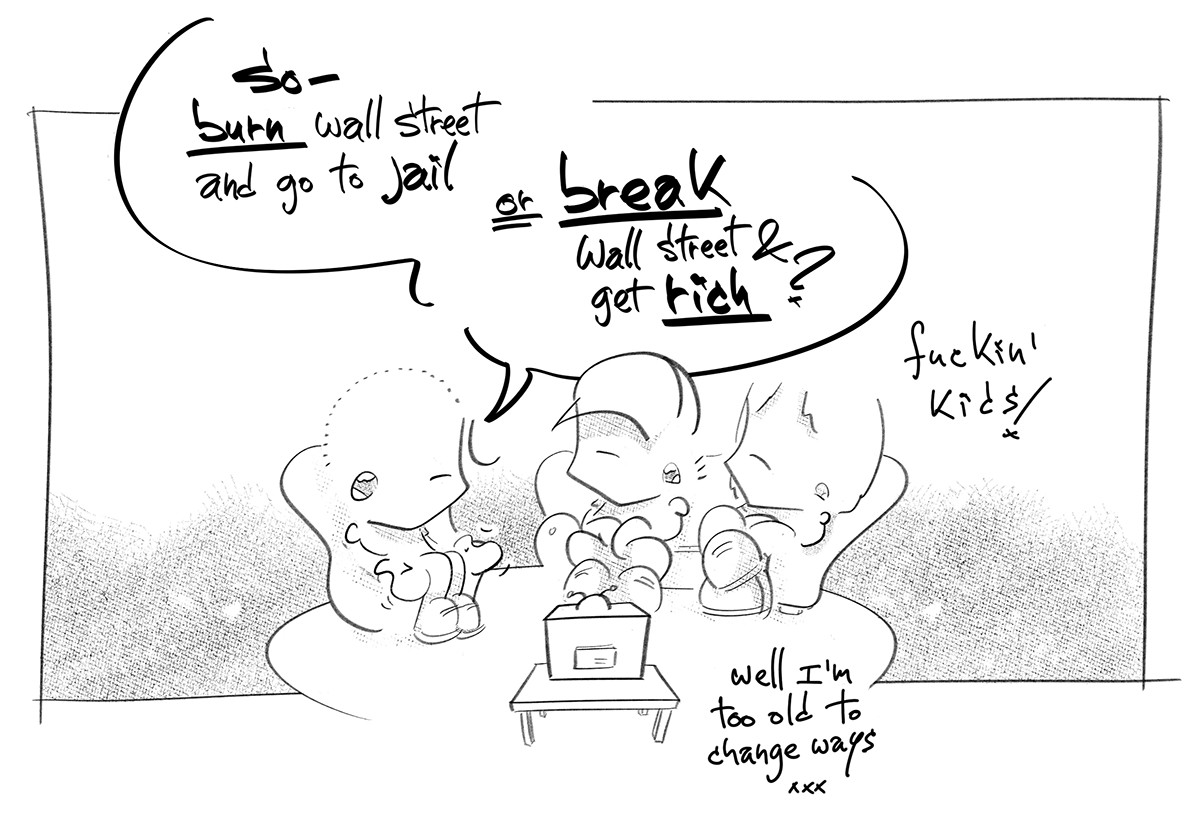 so-
burn wall street
and go to jail
or break
wall street &
get rich ?
fuckin'
kids!
well I'm
too old to
change ways
xxx